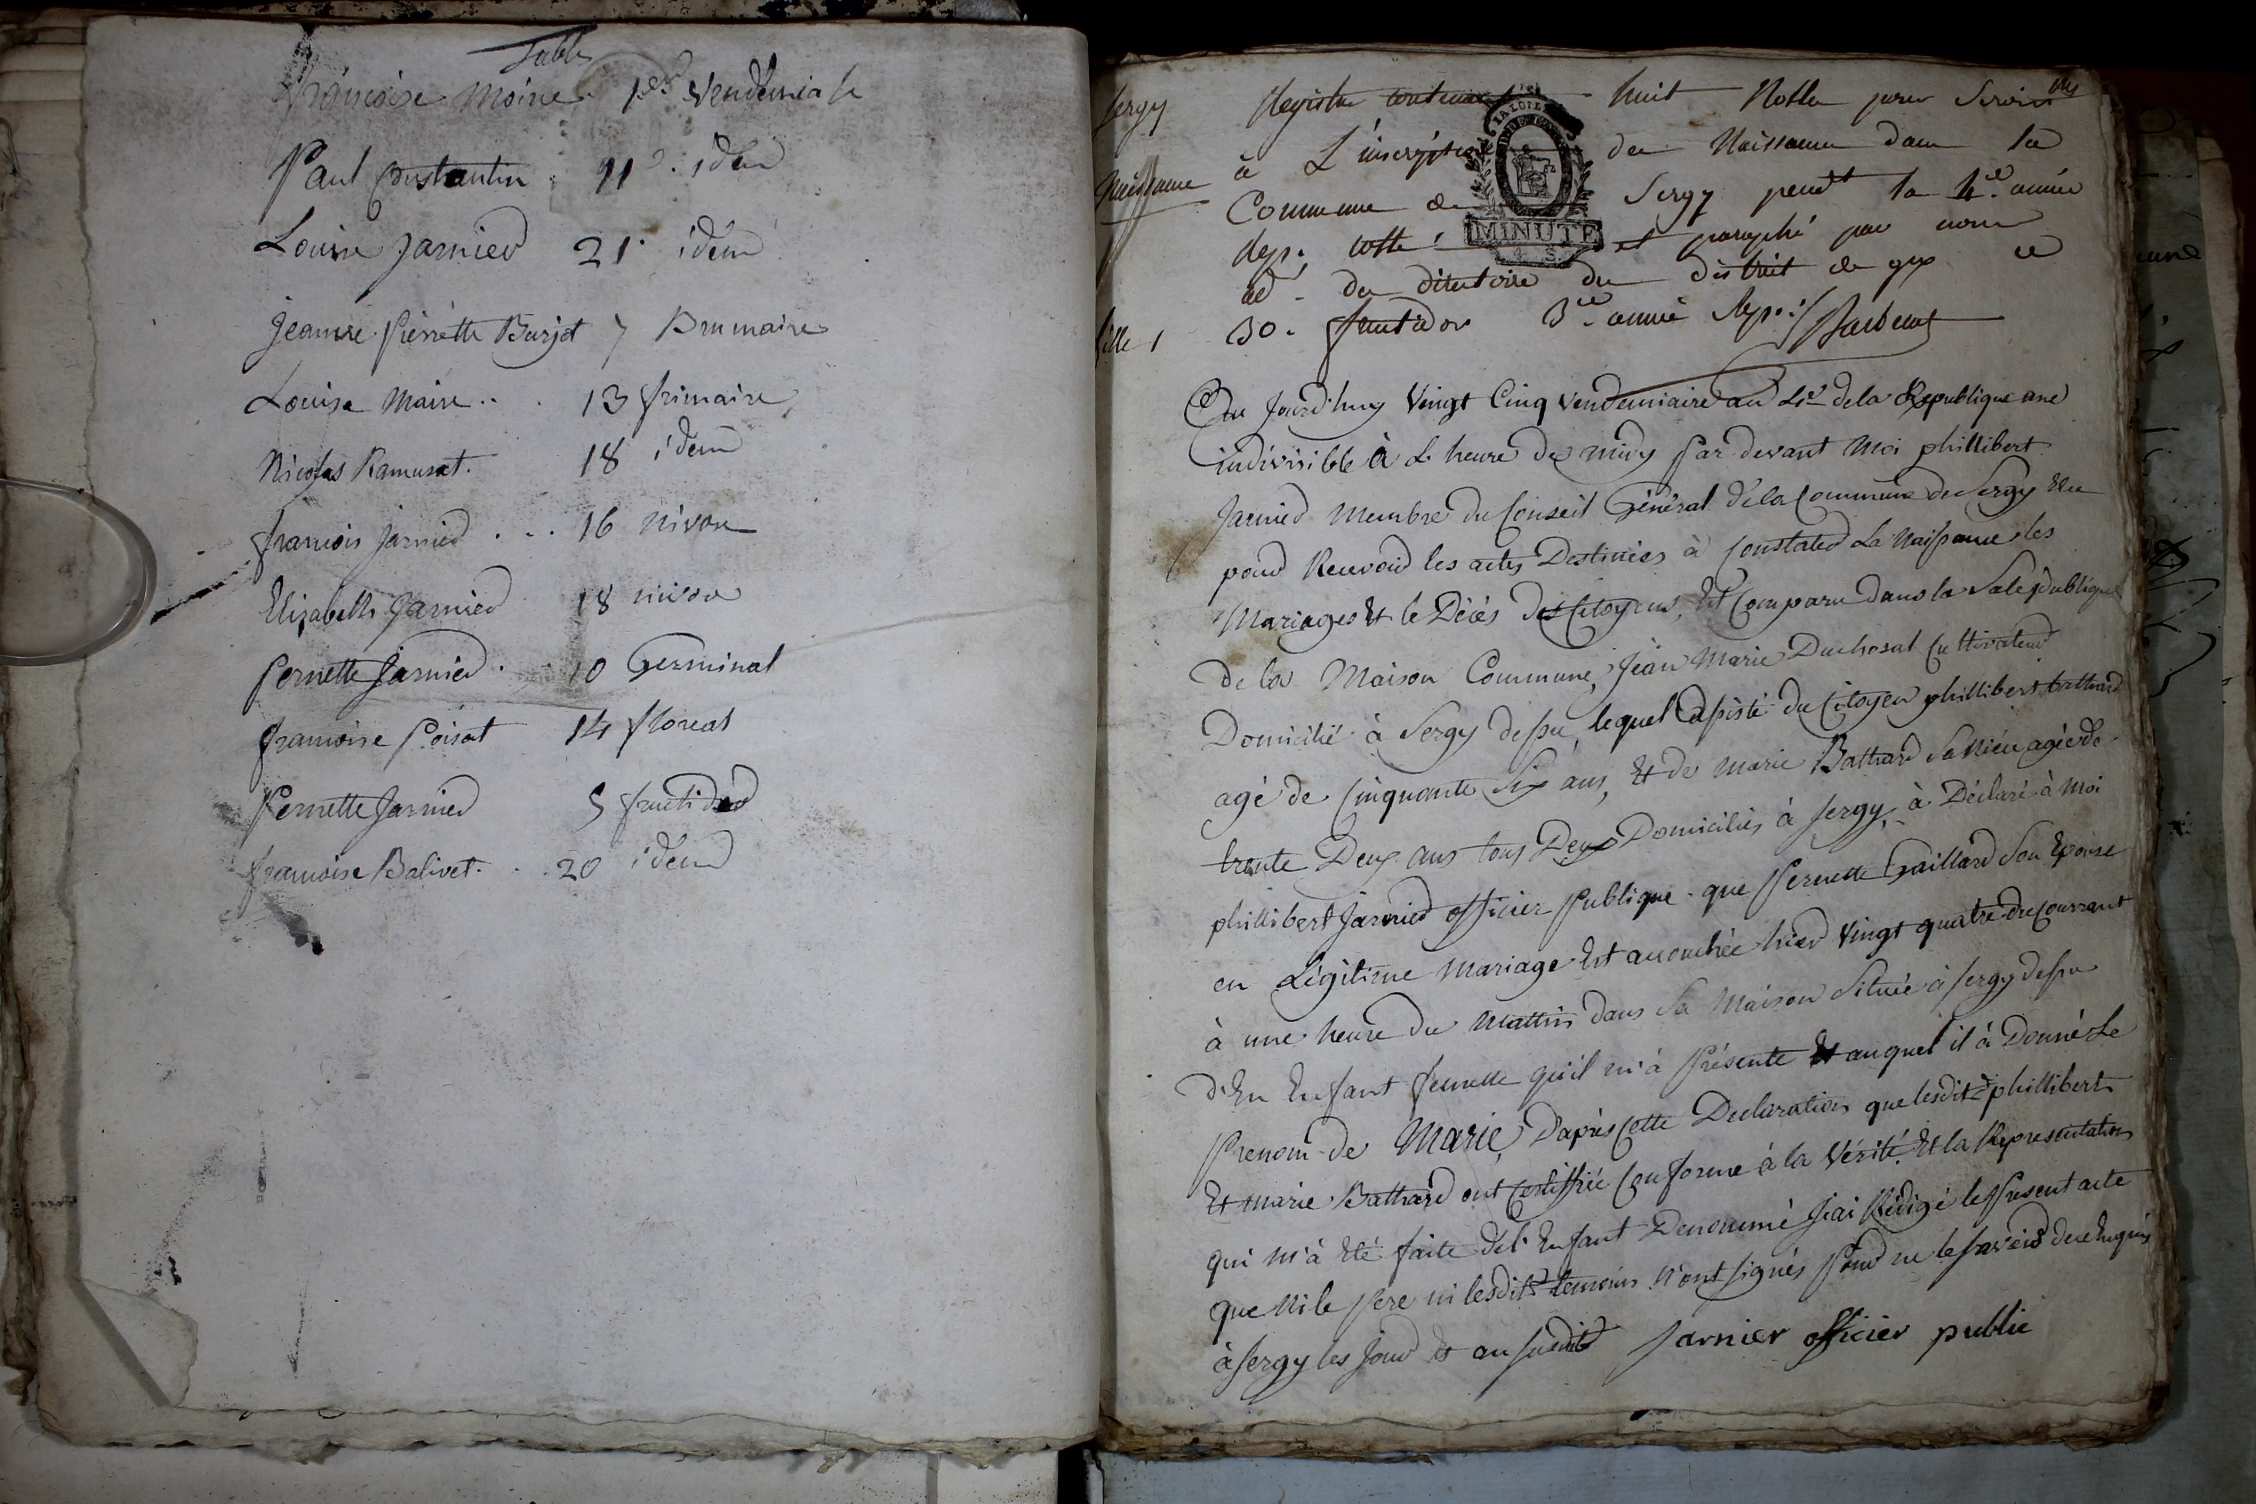 Table
françoise Moine. 1er Vendemiaire
Paul Constantin 11 idem
Louise Jarnier 21. idem
Jeanne Pierrette Burjot 7 Brumaire
Louise Maire 13 frimaire
Nicolas Ramusat. 18 idem
francois Jarnier 16 nivose
Elizabeth Jarnier 18 nivose
Pernette Jarnier 10 Germinal
francoise Poisat 14 floreal
Pernette Jarnier 5 fructidor
francoise Balivet. 20 idem
Sergy
Naissance
fille 1
Registre contenant huit
à L'inscription des Naissances dans la
Commune de Sergy pendt la 4e année
Rep. cotté et paraphé par nous
ad. du directoire du district de gex ce
30. fructidor 3e année Rep.
LA LOI
MINUTE
4 S.
Du Jourd'huy Vingt Cinq Vendemiaire an 4e de la Republique une
indivisible à L heure de midy Par devant Moi phillibert
Jarnier Membre du Conseil Général de la Commune de Sergy Elu
pour Recevoir les actes Destinés à Constater La Naissance les
Mariages Et le Décés des Citoyens, Est Comparu dans la Sale publique
de la Maison Commune, Jean Marie Duchosal Cultivateur
Domicilié à Sergy dessu, lequel assisté du Citoyen phillibert Bathard
agé de Cinquante Six ans, Et de Marie Bathard Sa Niéce agée de
trente Deux ans tous Deux Domiciliés à Sergy, à Déclaré à Moi
phillibert Jarnier officier Publique que Pernette Gaillard Son Epouse
en Légitime Mariage Est accouchée hier Vingt quatre du Courrant
à une heure du Mattin dans Sa Maison Située à Sergy dessu
d'Un Enfant femelle qu'il m'a Présenté Et auquel il à Donné Le
Prenom de Marie, D'aprés Cette Declaration que lesdits phillibert
Et Marie Bathard ont Certiffiée Conforme à la Vérité Et la Representation
qui m'à Eté faite de l'Enfant Denommé J'ai Rédigé le Present acte
que Ni le Pere ni lesdits temoins N'ont signés Pour ne le Savoir de ce Enquis
à Sergy les Jour Et an susdits Jarnier officier public